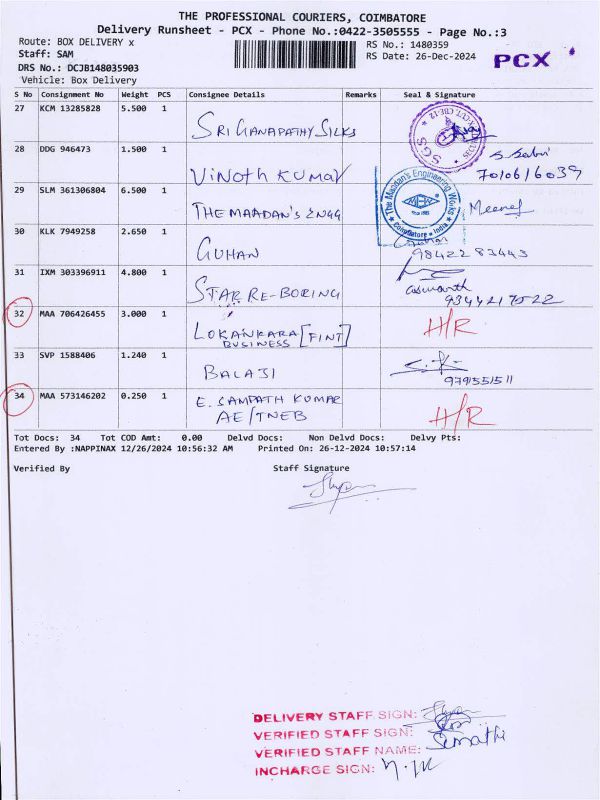 THE PROFESSIONAL COURIERS, COIMBATORE
Delivery Runsheet - PCX - Phone No.:0422-3505555 - Page No.:3
Route: BOX DELIVERY x
RS No.: 1480359
Staff: SAM
RS Date: 26-Dec-2024
PCX
DRS No.: DCJB148035903
Vehicle: Box Delivery
S No Consignment No Weight PCS Consignee Details Remarks Seal & Signature
27 KCM 13285828 5.500 1
SRI GANAPATHY SILKS
SGS
28 DDG 946473 1.500 1
VINOTH KUMAR
7010616039
29 SLM 361306804 6.500 1
THE MAADAN'S ENGG
The Maadan's Engineering Works
MEW
Coimbatore - India
30 KLK 7949258 2.650 1
GUHAN
9842283443
31 IXM 303396911 4.800 1
STAR RE-BORING
32 MAA 706426455 3.000 1
LOKANKARA [FINT]
BUSINESS
H/R
33 SVP 1588406 1.240 1
BALAJI
34 MAA 573146202 0.250 1
E. SAMPATH KUMAR
AE/TNEB
H/R
Tot Docs: 34 Tot COD Amt: 0.00 Delvd Docs: Non Delvd Docs: Delvy Pts:
Entered By :NAPPINAX 12/26/2024 10:56:32 AM Printed On: 26-12-2024 10:57:14
Verified By Staff Signature
DELIVERY STAFF SIGN:
VERIFIED STAFF SIGN:
VERIFIED STAFF NAME:
INCHARGE SIGN: